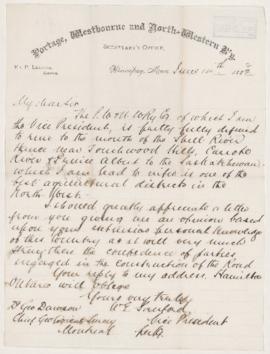 Portage, Westbourne and North-Western R'y.
SECRETARY'S OFFICE,
Winnipeg, Man. June 188
My dear Sir
The P. W & N. W Ry Co of which I am
the Vice President, is partly fully defined
to the mouth of the Shell River
thence near Touchwood Hills, Carrot
River & Prince Albert to the Saskatchewan
which I am led to infer is one of the
best agricultural districts in the
North West.
I should greatly appreciate a letter
from you giving me an opinion based
upon your extensive personal knowledge
of this country as it will very much
strengthen the confidence of parties
engaged in the construction of the Road
Your reply to my address, Hamilton
Ontario will oblige
Yours very truly
Dr Geo Dawson W E Sanford
Vice President
Montreal